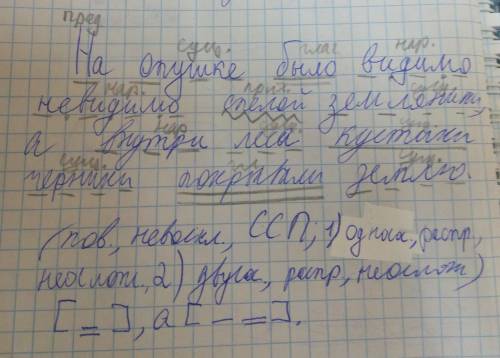 пред.
сущ. глаг нар.
На опушке было видимо
нар. прил. сущ.
невидимо спелой земляники,
нар. сущ. сущ.
а внутри леса кустики
сущ. гл. сущ.
черники покрывали землю.
(пов, невоскл, ССП, 1) одност, распр,
неослож, 2) двусост, распр, неослож)
[=], а [– =].